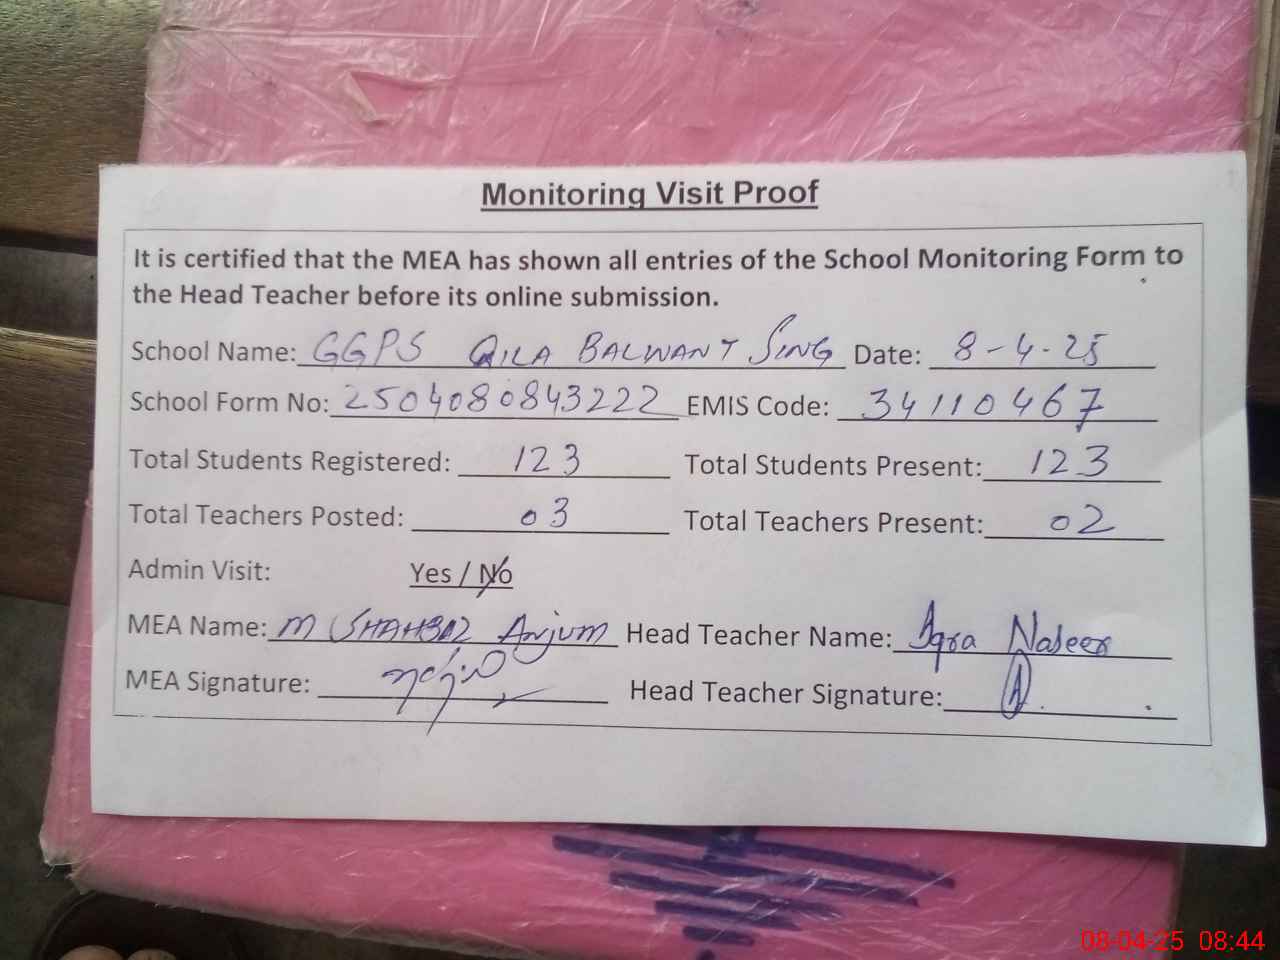 Monitoring Visit Proof
It is certified that the MEA has shown all entries of the School Monitoring Form to
the Head Teacher before its online submission.
School Name: GGPS QILA BALWANT SING Date: 8-4-25
School Form No: 2504080843222 EMIS Code: 34110467
Total Students Registered: 123 Total Students Present: 123
Total Teachers Posted: 03 Total Teachers Present: 02
Admin Visit: Yes / No
MEA Name: M SHAHBAZ Anjum Head Teacher Name: Iqra Naseer
MEA Signature: Head Teacher Signature:
08-04-25 08:44